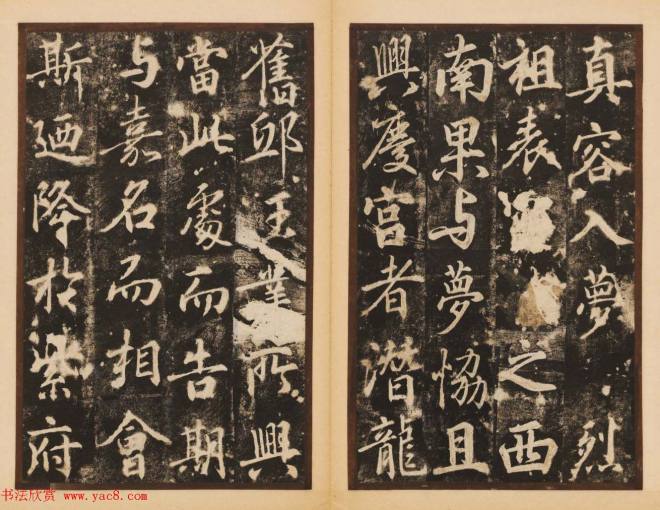 真容入夢烈
祖表之西
南果与夢恊且
興慶宮者潛龍
舊邸王業所興
當此處而告期
与嘉名而相會
斯廼降於紫府
书法欣赏 www.yac8.com